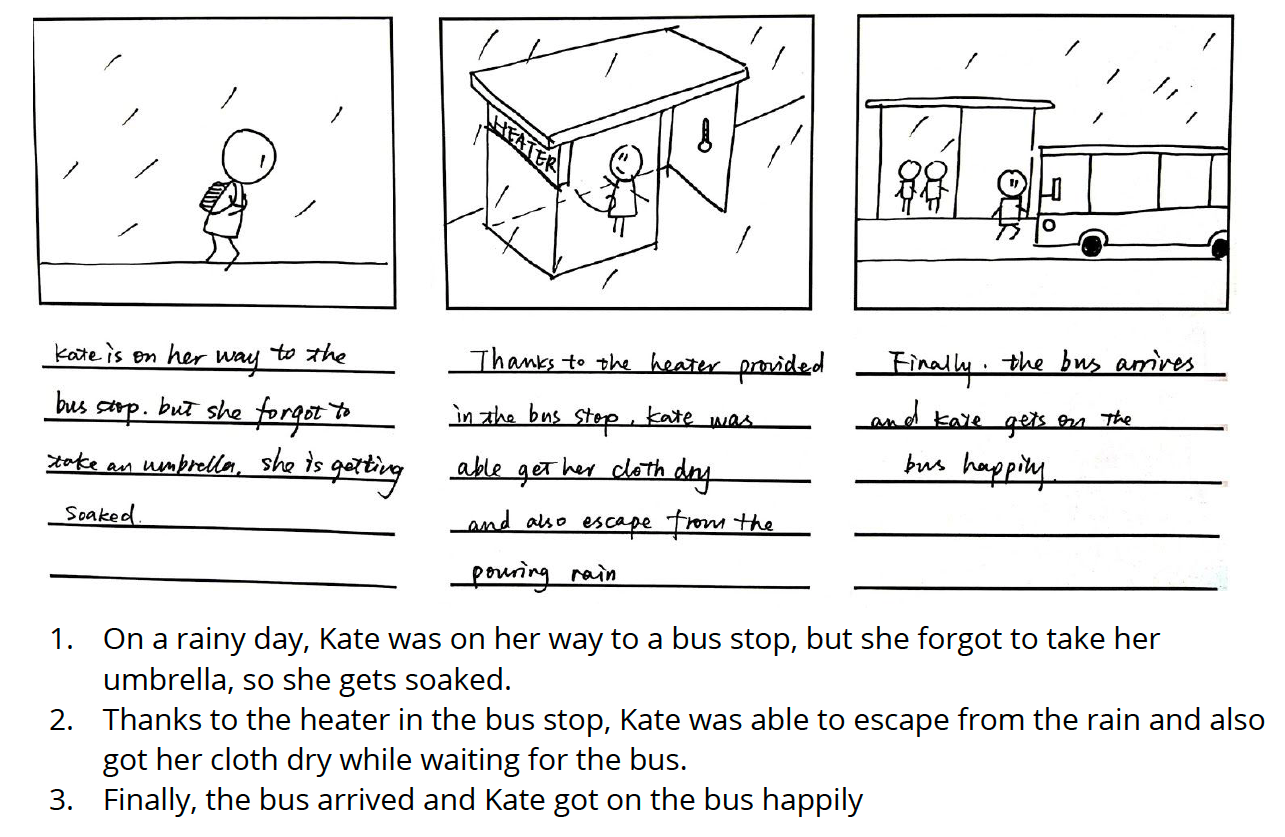 HEATER
Kate is on her way to the
bus stop. but she forgot to
take an umbrella. she is getting
soaked.
Thanks to the heater provided
in the bus stop, Kate was
able get her cloth dry
and also escape from the
pouring rain
Finally. the bus arrives
and Kate gets on the
bus happily.
1. On a rainy day, Kate was on her way to a bus stop, but she forgot to take her
umbrella, so she gets soaked.
2. Thanks to the heater in the bus stop, Kate was able to escape from the rain and also
got her cloth dry while waiting for the bus.
3. Finally, the bus arrived and Kate got on the bus happily